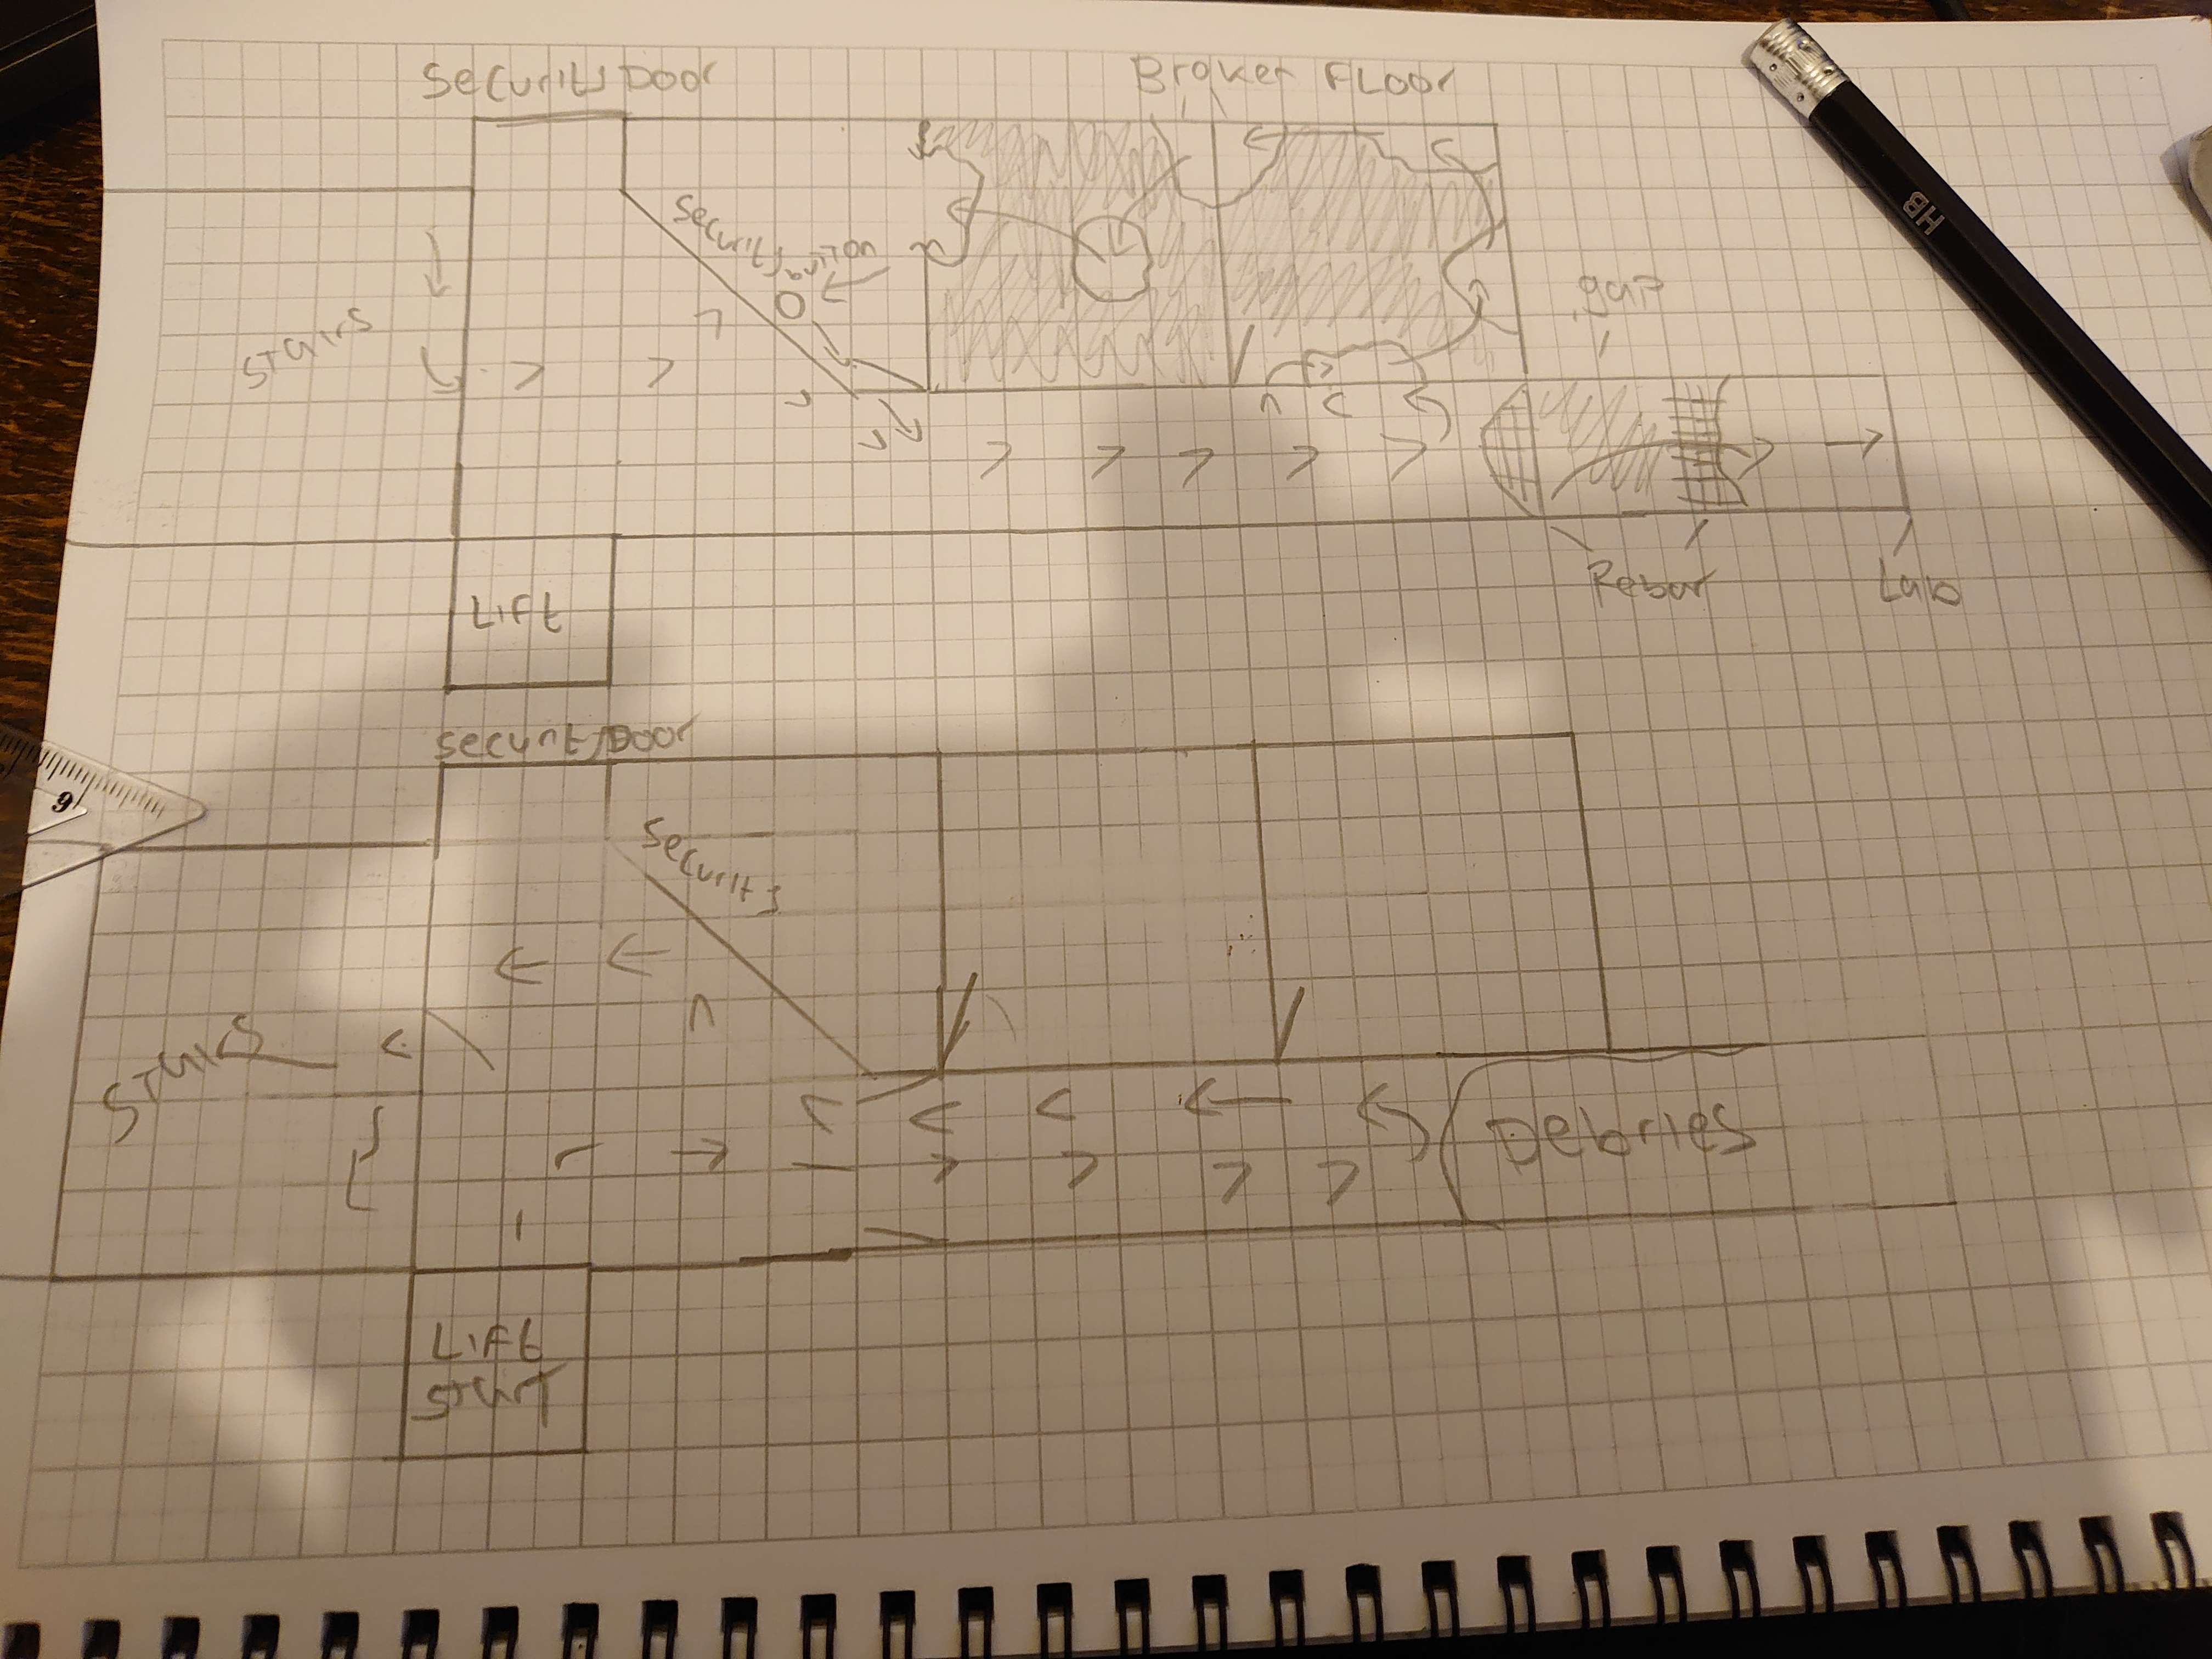 Security Door
Broken Floor
Security
Station
gap
Stairs
Rebar
Lab
Lift
Security Door
Security
Stairs
Debries
Lift
Start
HB
6